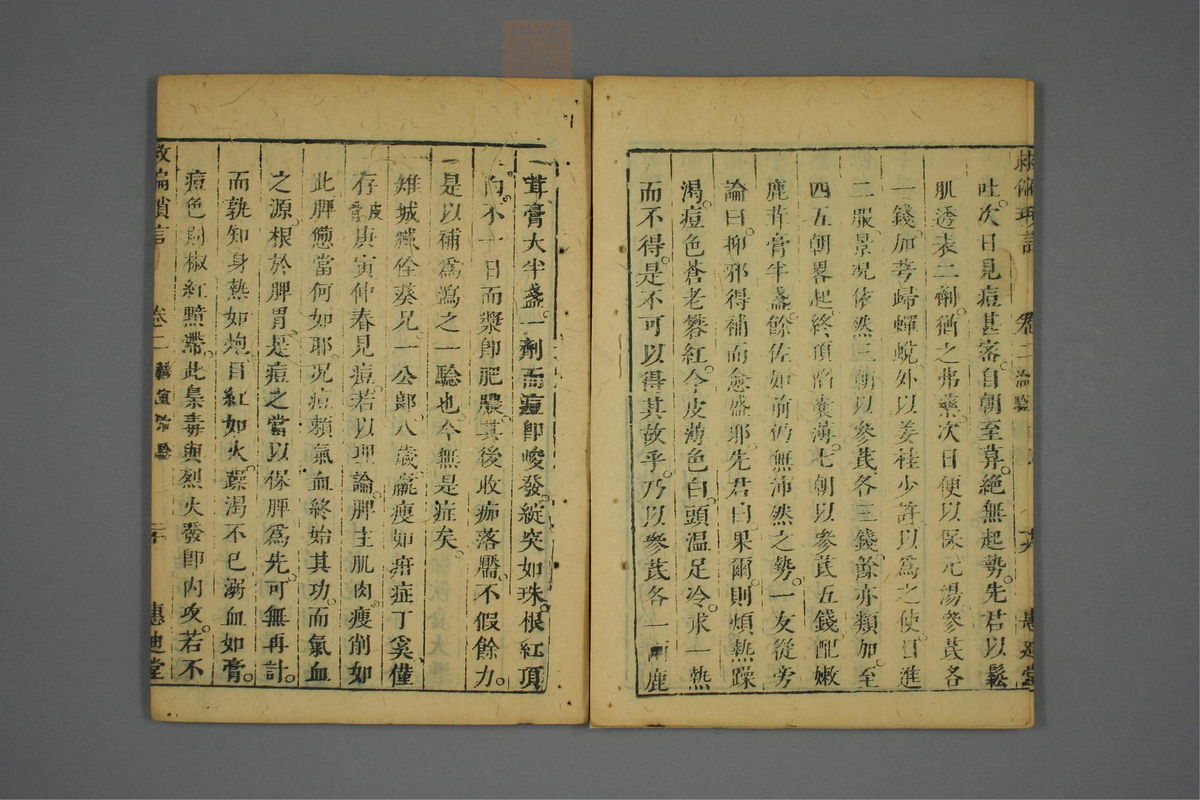 吐。次日見痘甚密。自朝至暮。絕無起勢。先君以鬆
肌透表二劑。猶之弗藥。次日便以保元湯。參芪各
一錢。加芎歸蟬蛻。外以姜桂少許。以爲之使。日進
二服。景况依然。三朝以參芪各三錢。餘亦類加。至
四五朝畧起。終頂陷囊薄。七朝以參芪五錢。配嫩
鹿茸膏半盞。餘佐如前。仍無沛然之勢。一友從旁
論曰。抑邪得補而愈盛耶。先君曰。果爾。則煩熱躁
渴。痘色蒼老礬紅。今皮薄色白。頭温足冷。求一熱
而不得。是不可以得其故乎。乃以參芪各一兩。鹿
茸膏大半盞。一劑而痘卽峻發。綻突如珠。根紅頂
白。不一日而漿卽肥膿。其後收痂落靨。不假餘力。
是以補爲瀉之一驗也。今無是症矣。
雉城臧佺葵兄一公郎。八歲。羸瘦如疳症丁奚。僅
存皮骨。庚寅仲春見痘。若以理論。脾主肌肉。瘦削如
此。脾憊當何如耶。况痘賴氣血終始其功。而氣血
之源。根於脾胃。是痘之當以保脾爲先。可無再計。
而孰知身熱如炮。目紅如火。躁渴不已。溺血如膏。
痘色則椒紅黯滯。此梟毒與烈火發卽內攻。若不
救偏瑣言 卷二 惠迪堂